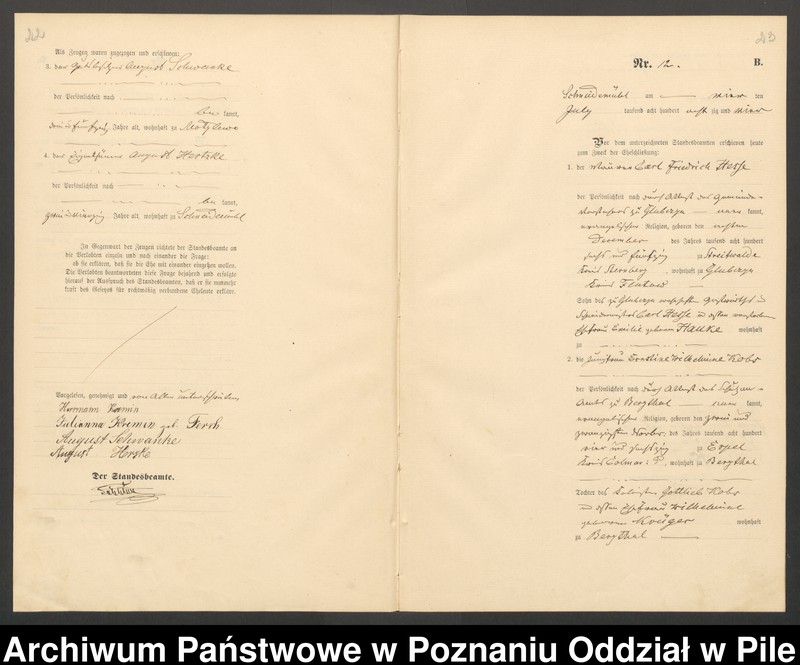 22
Als Zeugen waren zugezogen und erschienen:
3. der Gutsbesitzer August Schwanke
der Persönlichkeit nach
be kannt,
drei und fünfzig Jahre alt, wohnhaft zu Motylewo
4. der Eigenthümer August Hertzke
der Persönlichkeit nach
be kannt,
Jahre alt, wohnhaft zu Schneidemühl
In Gegenwart der Zeugen richtete der Standesbeamte an
die Verlobten einzeln und nach einander die Frage:
ob sie erklären, daß sie die Ehe mit einander eingehen wollen.
Die Verlobten beantworteten diese Frage bejahend und erfolgte
hierauf der Ausspruch des Standesbeamten, daß er sie nunmehr
kraft des Gesetzes für rechtmäßig verbundene Eheleute erkläre.
Vorgelesen, genehmigt und von Allen unterschrieben
Herrmann Kremin
Julianna Kremin geb. Ferch
August Schwanke
August Herzke
Der Standesbeamte.
23
Nr. 12. B.
Schneidemühl am vier ten
July tausend acht hundert acht zig und vier
Vor dem unterzeichneten Standesbeamten erschienen heute
zum Zweck der Eheschließung:
1. der Maurer Carl Friedrich Hesse
der Persönlichkeit nach durch Attest des Gemeinde-
vorstehers zu kannt,
evangelischer Religion, geboren den achten
December des Jahres tausend acht hundert
sechs und fünfzig zu Streitwalde
Kreis Sternberg, wohnhaft zu
Kreis Flatow
Sohn des zu
Carl Hesse und dessen verstorbenen
Ehefrau Emilie geborenen Hauke wohnhaft
zu
2. die Jungfrau Ernstine Wilhelmine Kobs
der Persönlichkeit nach durch Attest des Schulzen-
Amts zu Bergthal kannt,
evangelischer Religion, geboren den zwei und
zwanzigsten Novbr. des Jahres tausend acht hundert
vier und sechszig zu Erpel
Kreis Colmar i. P., wohnhaft zu Bergthal
Tochter des Kolonisten Gottlieb Kobs
und dessen Ehefrau Wilhelmine
geborenen Krüger wohnhaft
zu Bergthal
Archiwum Państwowe w Poznaniu Oddział w Pile